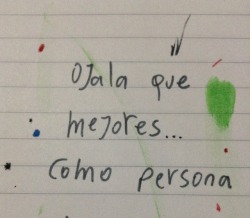 Ojala que
mejores...
Como persona